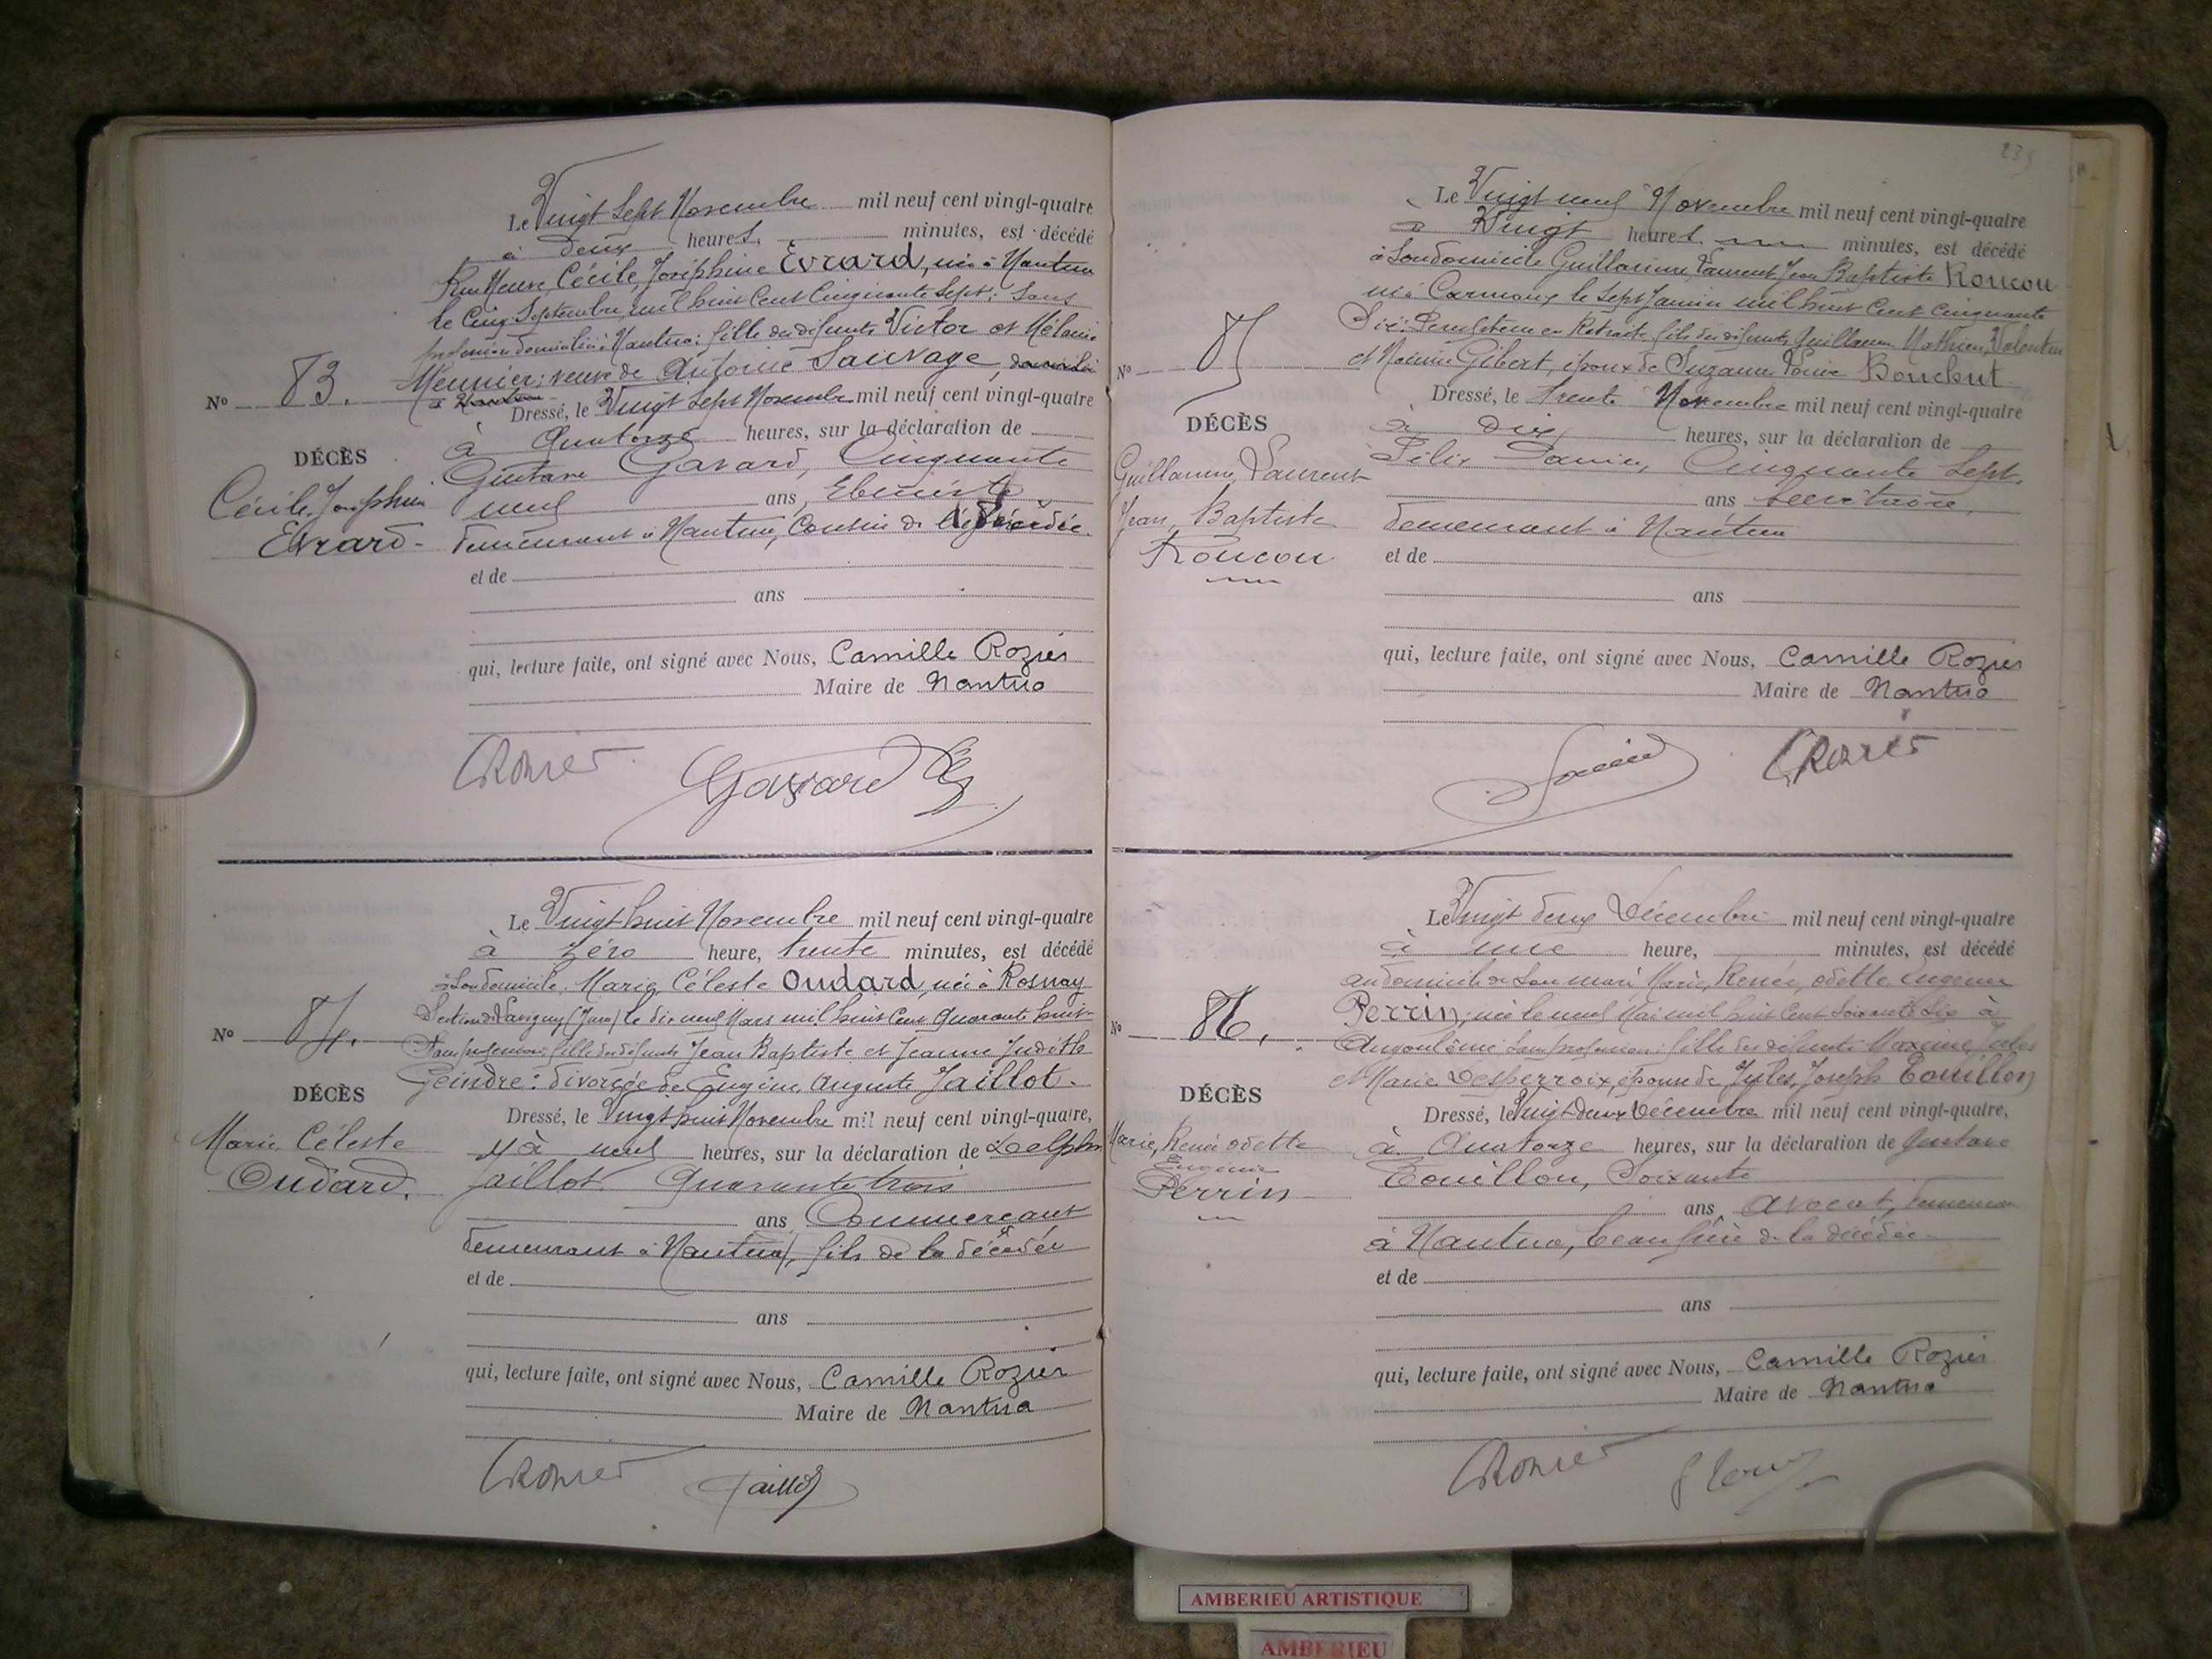 Le Vingt Sept Novembre mil neuf cent vingt-quatre
à deux heures, minutes, est décédé
Rue Neuve, Cécile, Joséphine Evrard, née à Nantua
le Cinq Septembre mil huit Cent Cinquante Sept; Sans
profession domiciliée à Nantua; fille des défunts Victor et Mélanie
Meunier; veuve de Antoine Sauvage, domicilié
à Nantua
No 83.
Dressé, le Vingt Sept Novembre mil neuf cent vingt-quatre
à Quatorze heures, sur la déclaration de
DÉCÈS
Gustave Gavard, Cinquante
Cécile, Joséphine
neuf ans, Ebéniste
Evrard
demeurant à Nantua, Cousin de la décédée
et de
ans
qui, lecture faite, ont signé avec Nous, Camille Rozier
Maire de Nantua
CRozier Gavard
Le Vingt huit Novembre mil neuf cent vingt-quatre
à zéro heure, trente minutes, est décédé
à Son domicile, Marie, Céleste Oudard, née à Rosnay
Section de Lavigny (Jura) le dix neuf Mars mil huit Cent Quarante huit
No 84.
Sans profession; fille des défunts Jean Baptiste et Jeanne Judith
Geindre: divorcée de Eugène, Auguste Jaillot.
DÉCÈS
Dressé, le Vingt huit Novembre mil neuf cent vingt-quatre,
Marie, Céleste
à neuf heures, sur la déclaration de Delphin
Oudard.
Jaillot, Quarante trois
ans, Commerçant
demeurant à Nantua, fils de la décédée
et de
ans
qui, lecture faite, ont signé avec Nous, Camille Rozier
Maire de Nantua
CRozier Jaillot
239
Le Vingt neuf Novembre mil neuf cent vingt-quatre
à Vingt heures minutes, est décédé
à Son domicile Guillaume, Laurent, Jean Baptiste Roucou
né à Carmaux le Sept Janvier mil huit Cent Cinquante
Six: en Retraite, fils des défunts Guillaume Mathieu, Valentin
et Marie Gibert, époux de Suzanne Bouclout
No 85
Dressé, le trente Novembre mil neuf cent vingt-quatre
DÉCÈS
à dix heures, sur la déclaration de
Guillaume, Laurent
Félix Cinquante Sept
ans Secrétaire,
Jean, Baptiste
demeurant à Nantua
Roucou
et de
ans
qui, lecture faite, ont signé avec Nous, Camille Rozier
Maire de Nantua
CRozier
Le Vingt deux Décembre mil neuf cent vingt-quatre
à une heure, minutes, est décédé
au domicile de Son mari Marie, Renée, Odette Eugénie
Perrin, née le neuf Mai mil huit Cent Soixante Six à
No 86.
Angoulême Sans profession: fille des défunts Maxime, Jules
et Marie Desperroix, épouse de Jules, Joseph Touillon
DÉCÈS
Dressé, le Vingt deux Décembre mil neuf cent vingt-quatre,
Marie, Renée Odette
à Quatorze heures, sur la déclaration de Gustave
Eugénie
Touillon, Soixante
Perrin
ans, avocat, demeurant
à Nantua, beau frère de la décédée
et de
ans
qui, lecture faite, ont signé avec Nous, Camille Rozier
Maire de Nantua
CRozier
AMBERIEU ARTISTIQUE
AMBERIEU